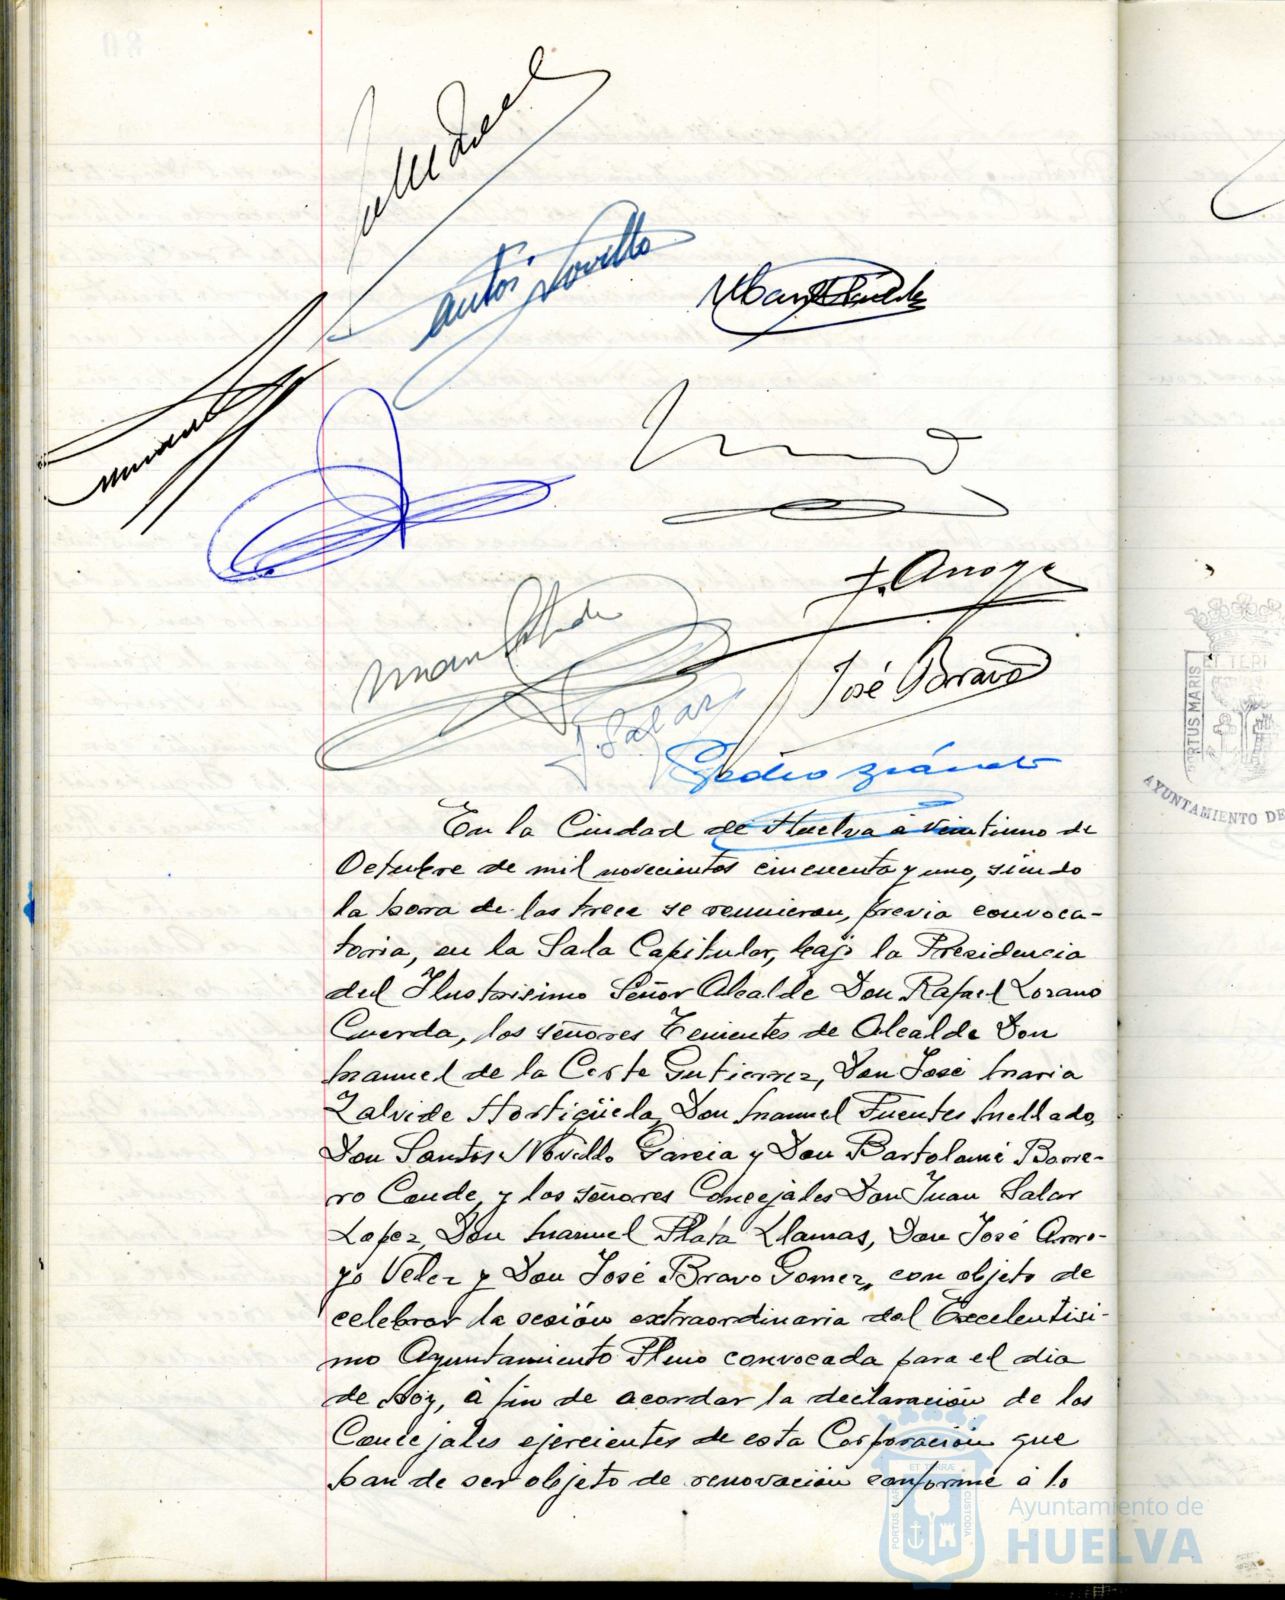 Santos Novillo
J. Arroyo
José Bravo
J. Salar
Pedro
En la Ciudad de Huelva à veintiuno de
Octubre de mil novecientos cincuenta y uno, siendo
la hora de las trece se reunieron, previa convoca-
toria, en la Sala Capitular, bajo la Presidencia
del Ilustrisimo Señor Alcalde Don Rafael Lozano
Cuerda, los señores Tenientes de Alcalde Don
Manuel de la Corte Gutierrez, Don José Maria
Zalvide Hortigüela, Don Manuel Fuentes Mellado,
Don Santos Novillo Garcia y Don Bartolomé Borre-
ro Conde, y los señores Concejales Don Juan Salar
Lopez, Don Manuel Plata Llamas, Don José Arro-
yo Velez y Don José Bravo Gomez, con objeto de
celebrar la sesión extraordinaria del Excelentisi-
mo Ayuntamiento Pleno convocada para el dia
de hoy, à fin de acordar la declaración de los
Concejales ejercientes de esta Corporación que
han de ser objeto de renovación conforme à lo
PORTUS MARIS
ET TERR
AYUNTAMIENTO DE
PORTUS
ET TERRÆ
CUSTODIA
Ayuntamiento de
HUELVA